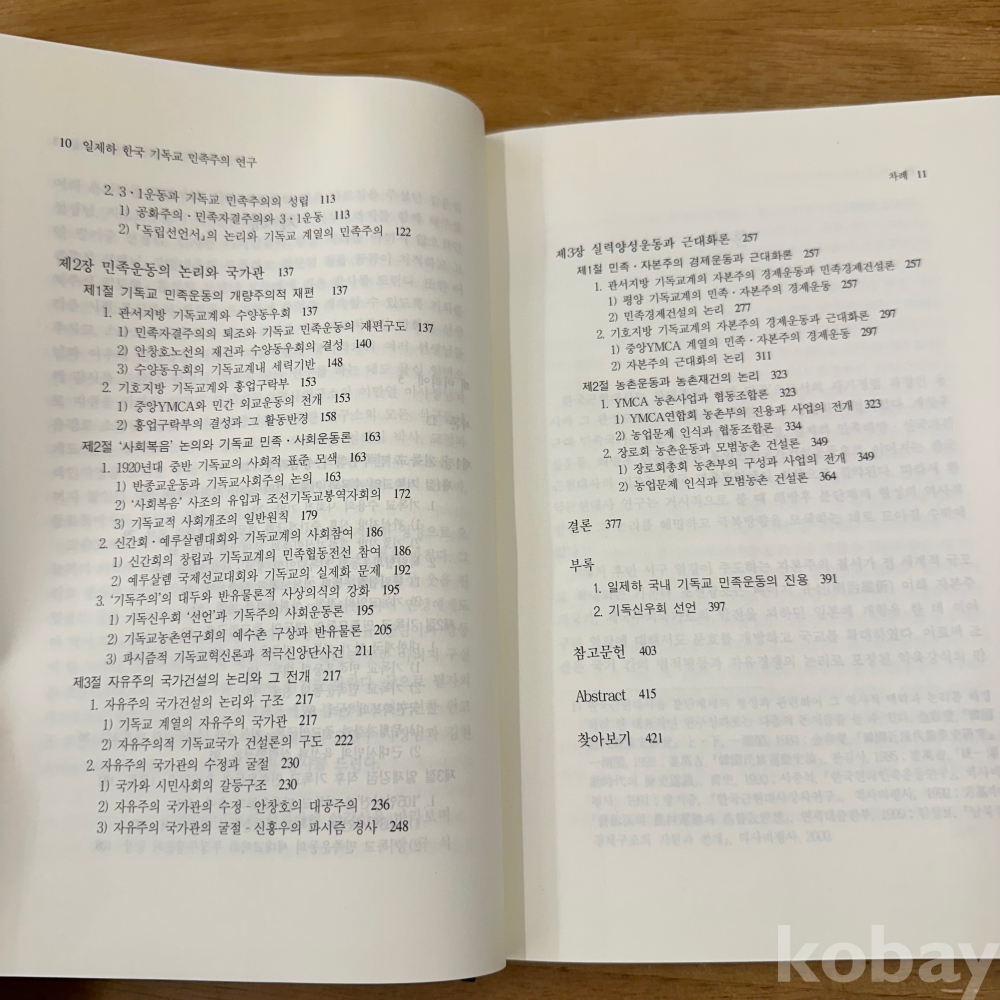 10 일제하 한국 기독교 민족주의 연구
2. 3·1운동과 기독교 민족주의의 성립 113
1) 공화주의·민족자결주의와 3·1운동 113
2) 『독립선언서』의 논리와 기독교 계열의 민족주의 122
제2장 민족운동의 논리와 국가관 137
제1절 기독교 민족운동의 개량주의적 재편 137
1. 관서지방 기독교계와 수양동우회 137
1) 민족자결주의의 퇴조와 기독교 민족운동의 재편구도 137
2) 안창호노선의 재건과 수양동우회의 결성 140
3) 수양동우회의 기독교계내 세력기반 148
2. 기호지방 기독교계와 흥업구락부 153
1) 중앙YMCA와 민간 외교운동의 전개 153
2) 흥업구락부의 결성과 그 활동반경 158
제2절 '사회복음' 논의와 기독교 민족·사회운동론 163
1. 1920년대 중반 기독교의 사회적 표준 모색 163
1) 반종교운동과 기독교사회주의 논의 163
2) '사회복음' 사조의 유입과 조선기독교봉역자회의 172
3) 기독교적 사회개조의 일반원칙 179
2. 신간회·예루살렘대회와 기독교계의 사회참여 186
1) 신간회의 창립과 기독교계의 민족협동전선 참여 186
2) 예루살렘 국제선교대회와 기독교의 실제화 문제 192
3. '기독주의'의 대두와 반유물론적 사상의식의 강화 195
1) 기독신우회 '선언'과 기독주의 사회운동론 195
2) 기독교농촌연구회의 예수촌 구상과 반유물론 205
3) 파시즘적 기독교혁신론과 적극신앙단사건 211
제3절 자유주의 국가건설의 논리와 그 전개 217
1. 자유주의 국가건설의 논리와 구조 217
1) 기독교 계열의 자유주의 국가관 217
2) 자유주의적 기독교국가 건설론의 구도 222
2. 자유주의 국가관의 수정과 굴절 230
1) 국가와 시민사회의 갈등구조 230
2) 자유주의 국가관의 수정 - 안창호의 대공주의 236
3) 자유주의 국가관의 굴절 - 신흥우의 파시즘 경사 248
차례 11
제3장 실력양성운동과 근대화론 257
제1절 민족·자본주의 경제운동과 근대화론 257
1. 관서지방 기독교계의 자본주의 경제운동과 민족경제건설론 257
1) 평양 기독교계의 민족·자본주의 경제운동 257
2) 민족경제건설의 논리 277
2. 기호지방 기독교계의 자본주의 경제운동과 근대화론 297
1) 중앙YMCA 계열의 민족·자본주의 경제운동 297
2) 자본주의 근대화의 논리 311
제2절 농촌운동과 농촌재건의 논리 323
1. YMCA 농촌사업과 협동조합론 323
1) YMCA연합회 농촌부의 진용과 사업의 전개 323
2) 농업문제 인식과 협동조합론 334
2. 장로회 농촌운동과 모범농촌 건설론 349
1) 장로회총회 농촌부의 구성과 사업의 전개 349
2) 농업문제 인식과 모범농촌 건설론 364
결론 377
부록
1. 일제하 국내 기독교 민족운동의 진용 391
2. 기독신우회 선언 397
참고문헌 403
Abstract 415
찾아보기 421
kobay